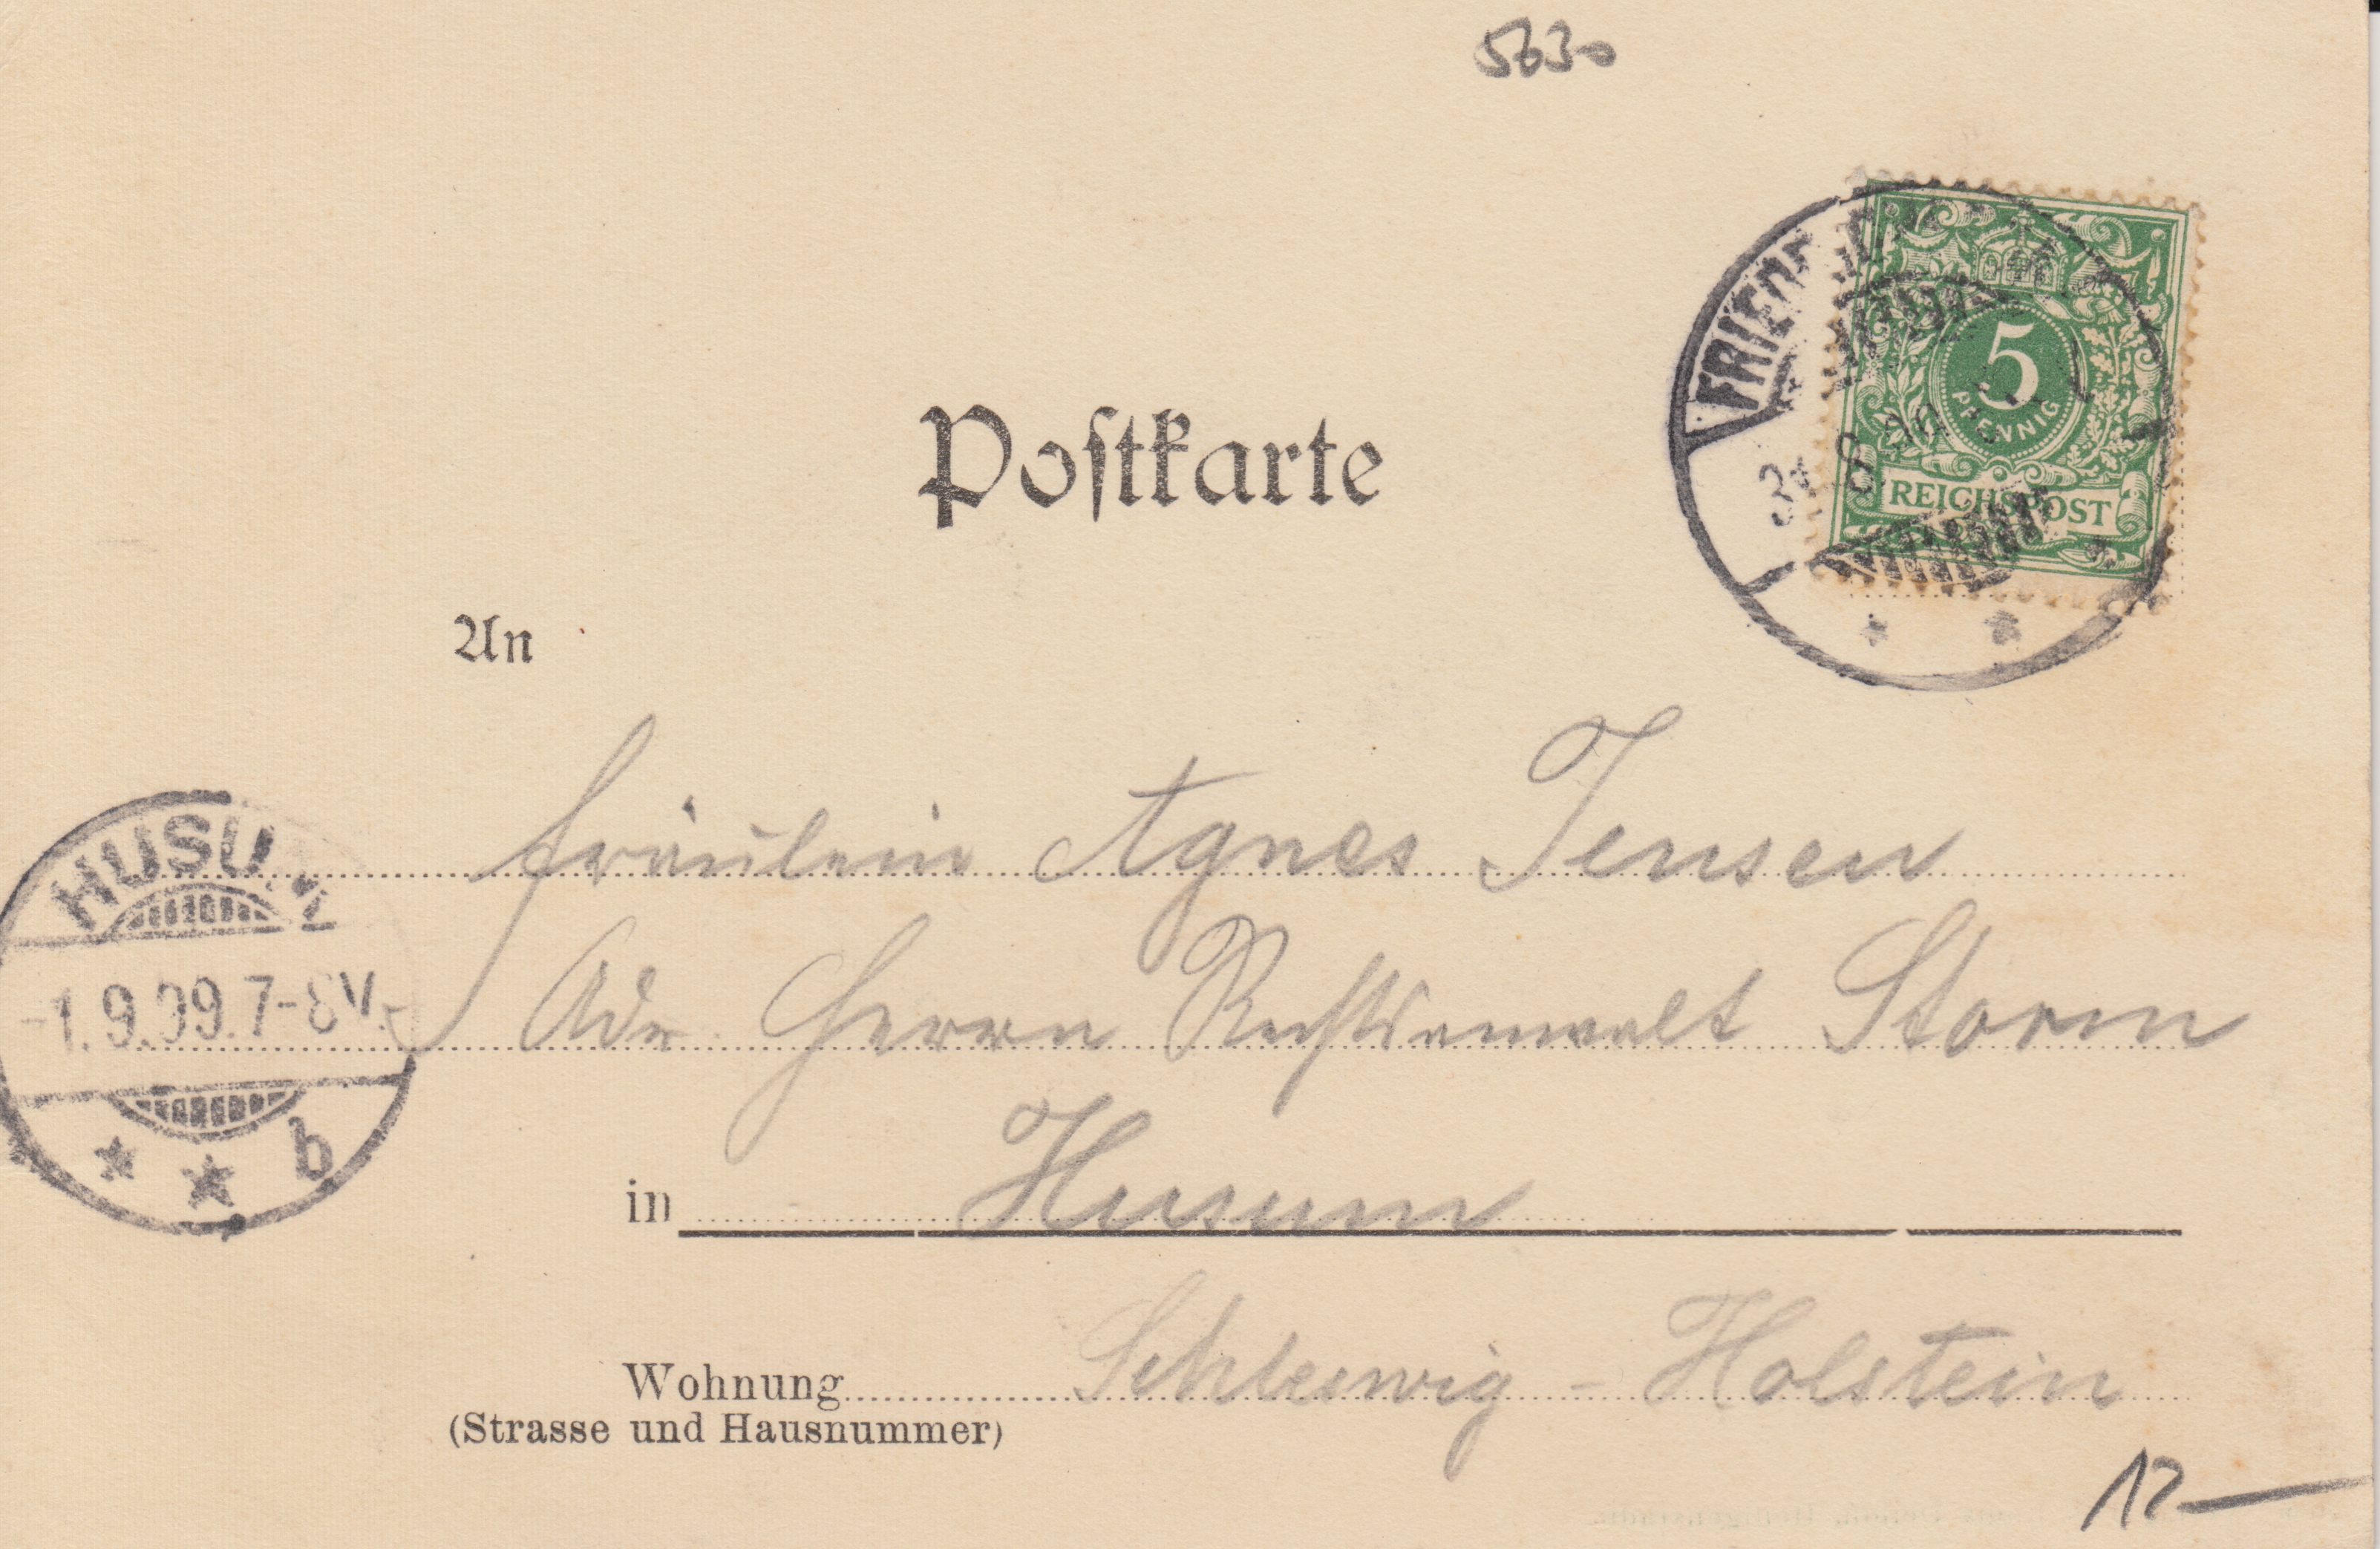 5630
5
PFENNIG
REICHSPOST
FRIED
31 8
Postkarte
An
Fräulein Agnes Jensen
Adr. Herrn Rechtsanwalt Storm
in Husum
Wohnung Schleswig - Holstein
(Strasse und Hausnummer)
HUSUM
-1.9.99.7-8V.
* * b
12-